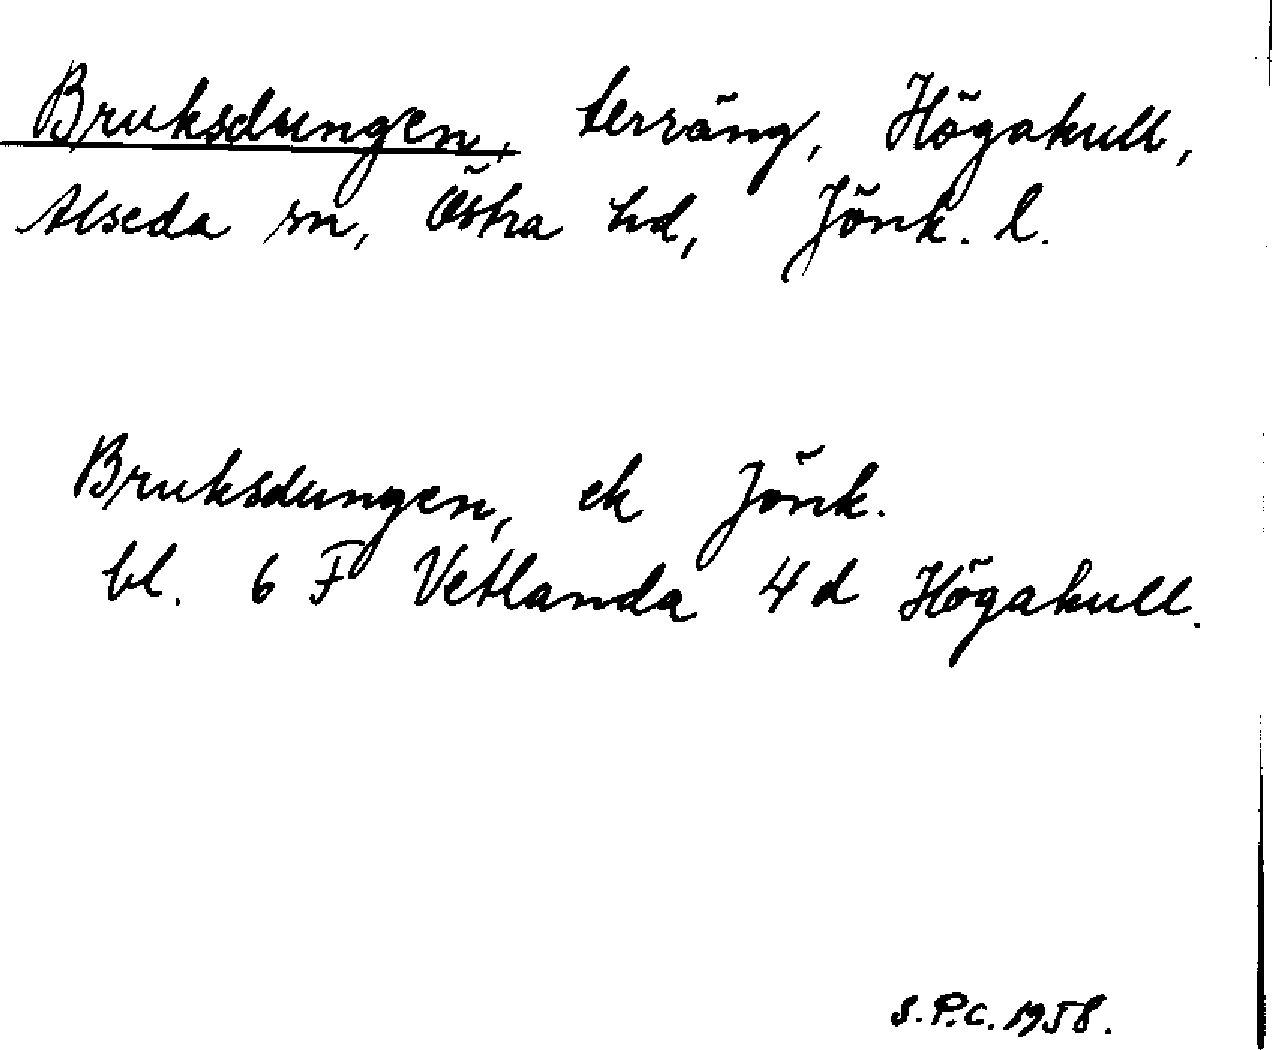 Bruksdungen, terräng, Högakull,
Alseda sn, Östra hd, Jönk. l.
Bruksdungen, ek Jönk.
bl. 6 F Vetlanda 4 d Högakull.
S.P.C. 1958.